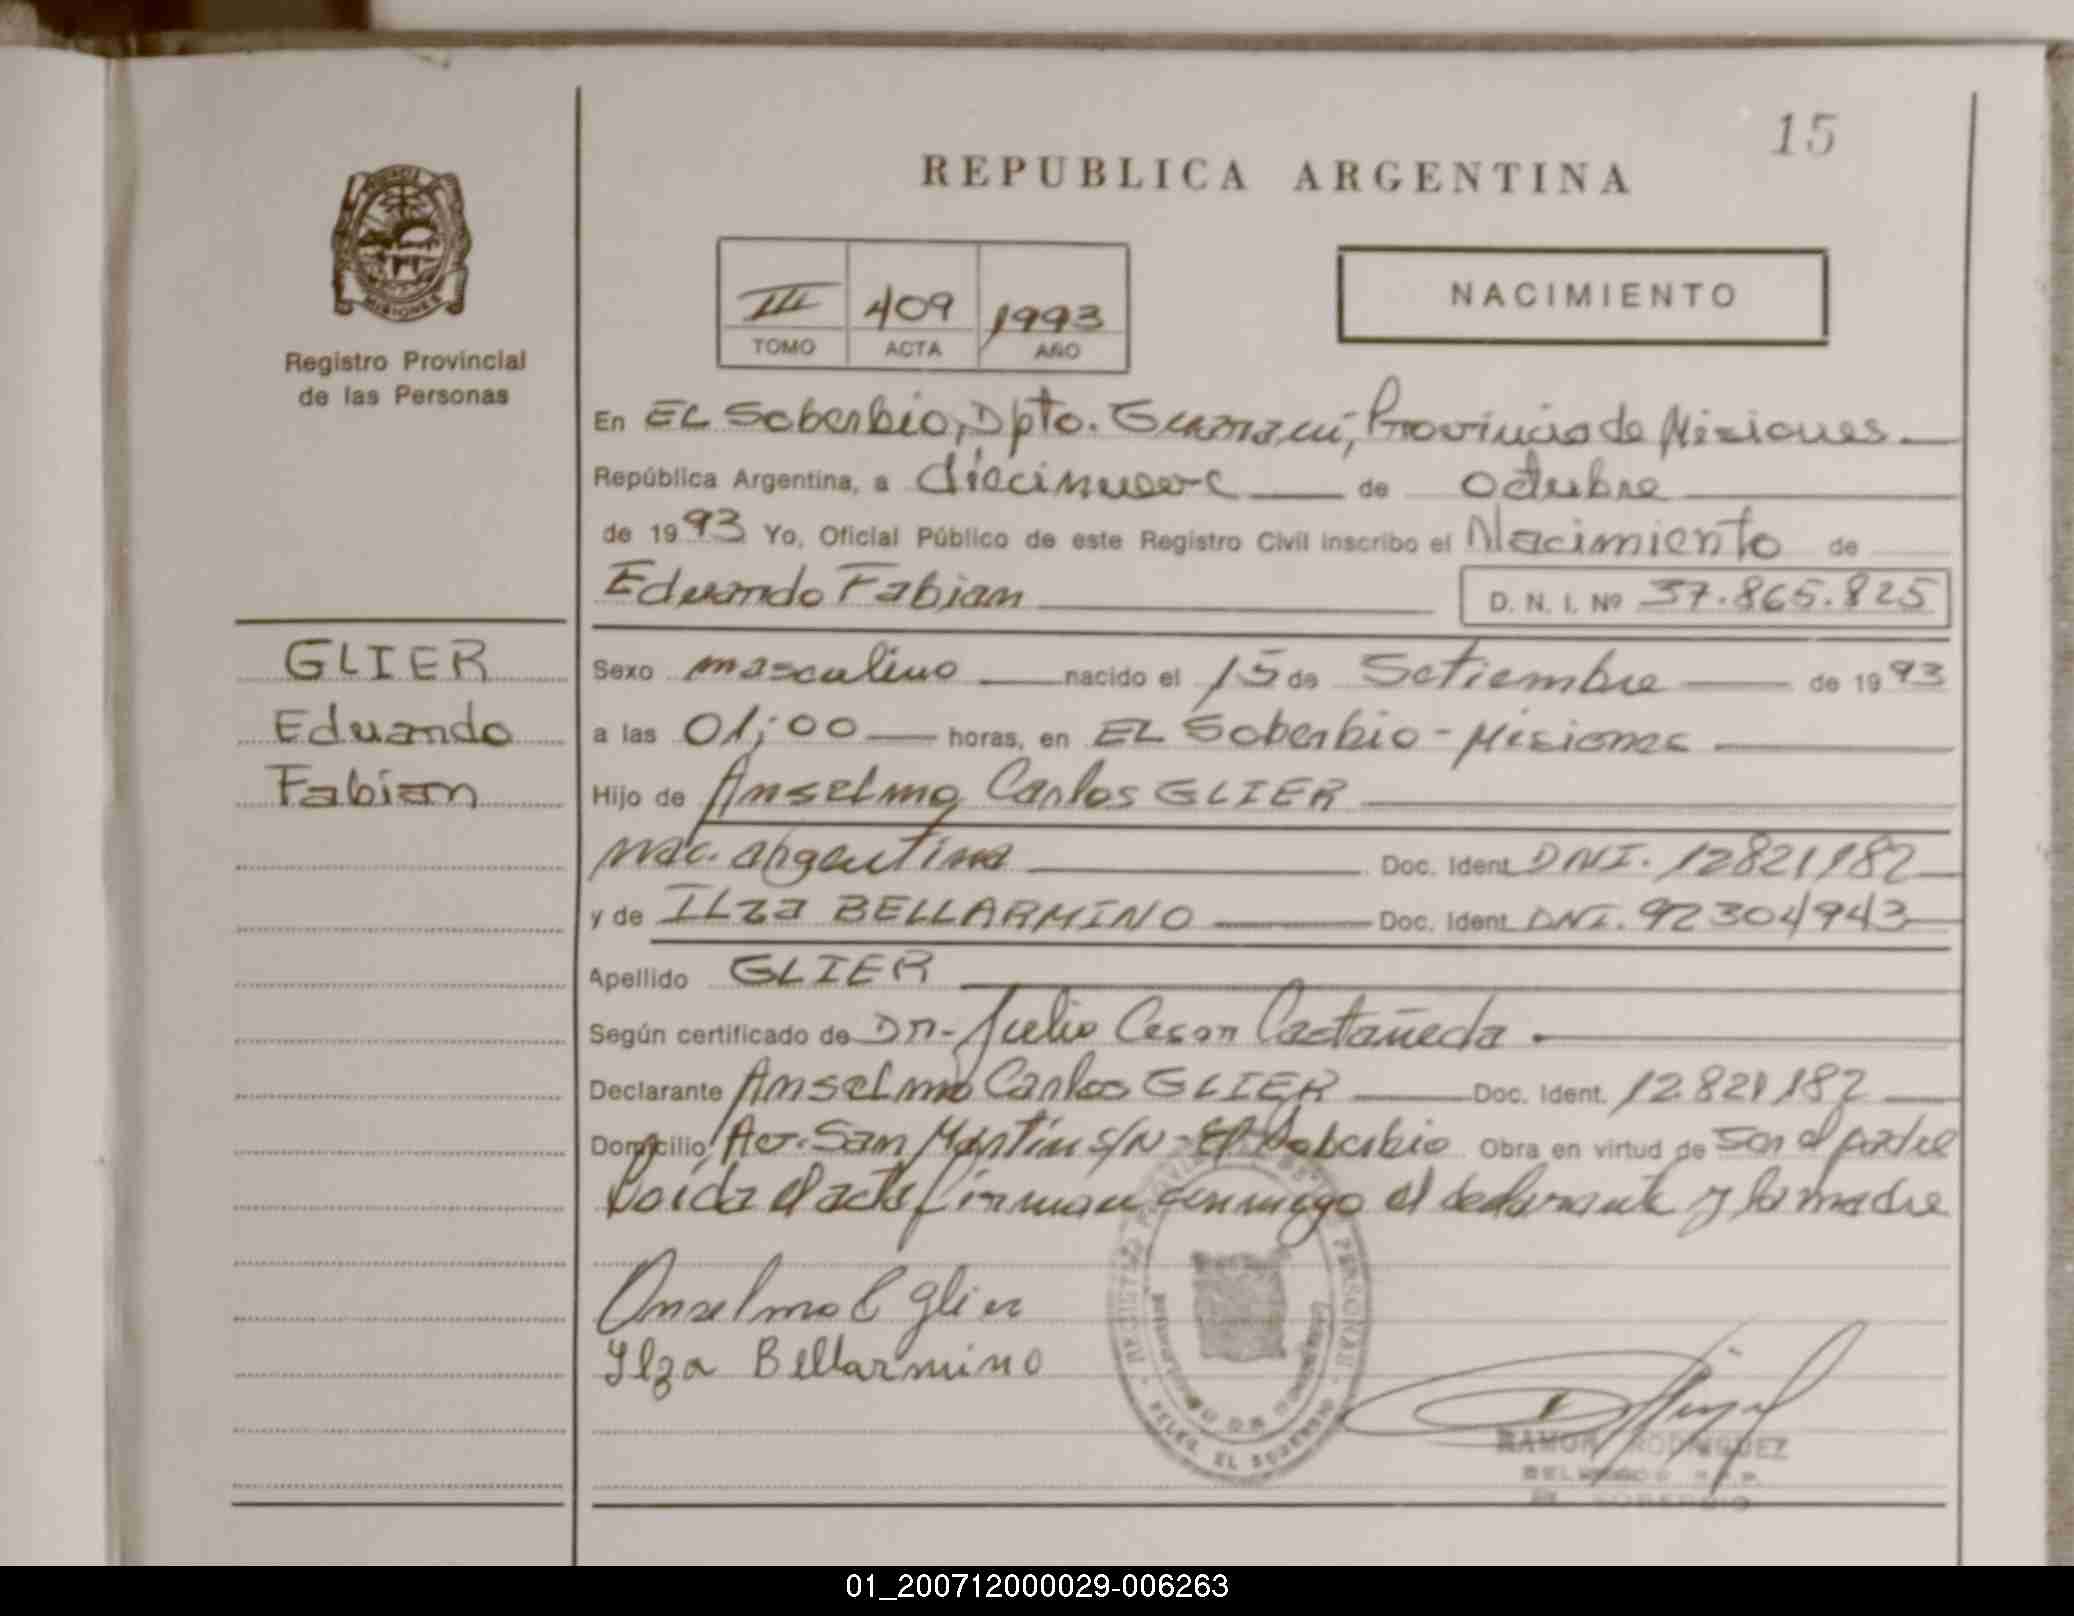 15
REPUBLICA ARGENTINA
MISIONES
Registro Provincial
de las Personas
III 409 1993
TOMO ACTA AÑO
NACIMIENTO
En EL Soberbio, Dpto. Guaraní, Provincia de Misiones
República Argentina, a diecinueve de octubre
de 1993 Yo, Oficial Público de este Registro Civil inscribo el Nacimiento de
Eduardo Fabian D. N. I. Nº 37.865.825
GLIER
Eduardo
Fabian
Sexo masculino nacido el 15 de Setiembre de 1993
a las 01;00 horas, en EL Soberbio - Misiones
Hijo de Anselmo Carlos GLIER
nac. argentina Doc. Ident. DNI. 12821182
y de ILza BELLARMINO Doc. Ident. DNI. 92304943
Apellido GLIER
Según certificado de Dr. Julio Cesar Castañeda
Declarante Anselmo Carlos GLIER Doc. Ident. 12.821182
Domicilio Av. San Martín S/N - El Soberbio Obra en virtud de ser el padre
Leída el acta firman conmigo el declarante y la madre
Anselmo C Glier
Ylza Bellarmino
EL SOBERBIO
RAMON RODRIGUEZ
EL SOBERBIO
01_200712000029-006263